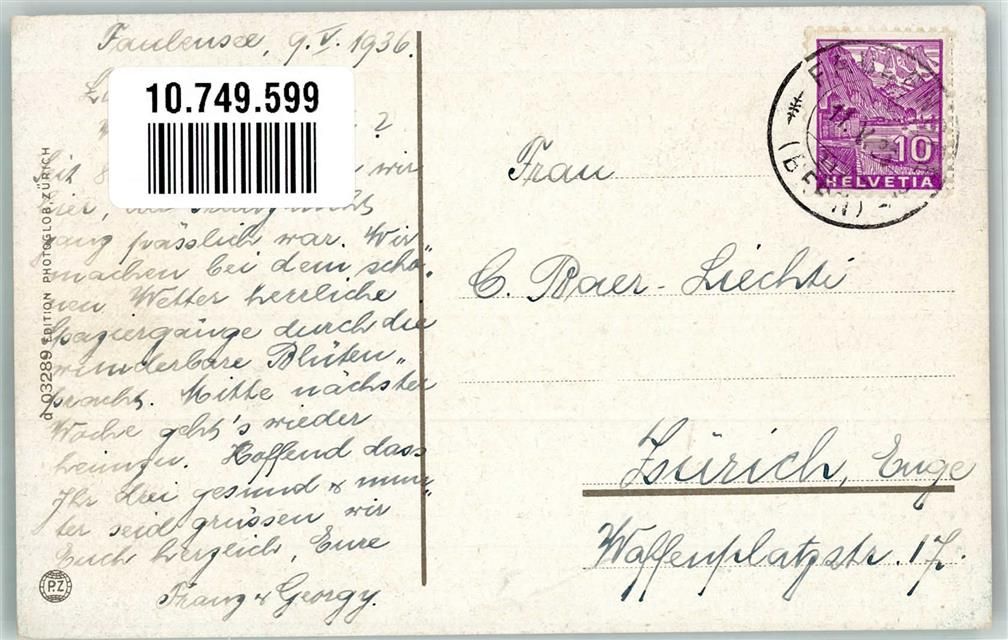 Faulensee, 9. V. 1936.
10.749.599
?
Seit 8 wir
hier,
ganz pässlich war. Wir
machen bei dem schö„
nen Wetter herrliche
Spaziergänge durch die
wunderbare Blüten„
pracht. Mitte nächster
Woche geht's wieder
heimzu. Hoffend dass
Ihr drei gesund & mun„
ter seid grüssen wir
Euch herzlich, Eure
Franz & Georgy.
d 03289 EDITION PHOTOGLOB, ZÜRICH
P.Z
(BERN)
10
HELVETIA
Frau
C. Baer-Liechti
Zürich, Enge
Waffenplatzstr. 17.